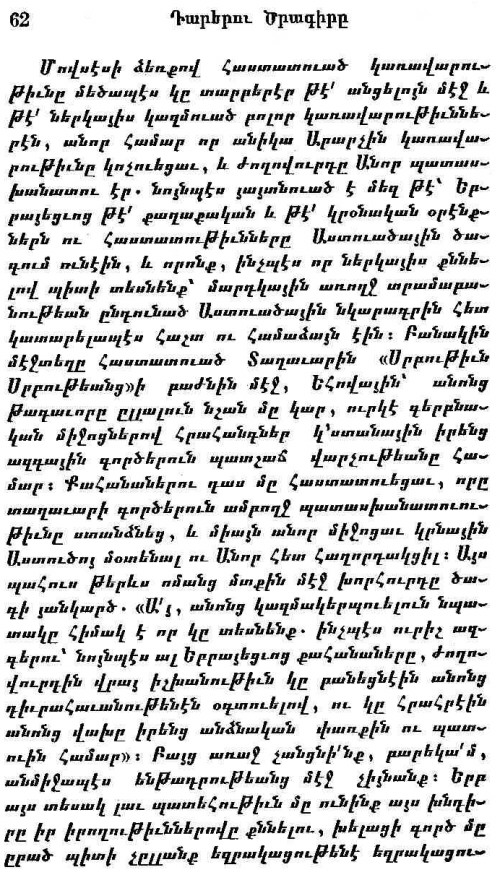 62 Դարերու Ծրագիրը
Մովսէսի ձեռքով հաստատուած կառավարու-
թիւնը մեծապէս կը տարբերէր թէ՛ անցելոյն մէջ և
թէ՛ ներկայիս կազմուած բոլոր կառավարութիւննե-
րէն, անոր համար որ անիկա Արարչին կառավա-
րութիւնը կոչուեցաւ, և ժողովուրդը Անոր պատաս-
խանատու էր. նոյնպէս յայտնուած է մեզ թէ՝ Եբ-
րայեցւոց թէ՛ քաղաքական և թէ՛ կրօնական օրէնք-
ներն ու հաստատութիւնները Աստուածային ծա-
գում ունէին, և որոնք, ինչպէս որ ներկայիս քննե-
լով պիտի տեսնենք՝ մարդկային առողջ տրամաբա-
նութեան ընդունած Աստուածային նկարագրին հետ
կատարելապէս հաշտ ու համաձայն էին։ Բանակին
մէջտեղը հաստատուած Տաղաւարին «Սրբութիւն
Սրբութեանց»ի բաժնին մէջ, Եհովային՝ անոնց
թագաւորը ըլլալուն նշան մը կար, ուրկէ գերբնա-
կան միջոցներով հրահանգներ կ՚ստանային իրենց
ազգային գործերուն պատշաճ վարչութեանը հա-
մար։ Քահանաներու դաս մը հաստատուեցաւ, որը
տաղաւարի գործերուն ամբողջ պատասխանատուու-
թիւնը ստանձնեց, և միայն անոր միջոցաւ կրնային
Աստուծոյ մօտենալ ու Անոր հետ հաղորդակցիլ։ Այս
պահուս թերևս ոմանց մտքին մէջ խորհուրդը ծա-
գի յանկարծ. «Ա՛յ, անոնց կազմակերպուելուն նպա-
տակը հիմակ է որ կը տեսնենք. ինչպէս ուրիշ ազ-
գերու՝ նոյնպէս ալ Եբրայեցւոց քահանաները, ժողո-
վուրդին վրայ իշխանութիւն կը բանեցնէին անոնց
դիւրահաւանութենէն օգտուելով, ու կը հրահրէին
անոնց վախը իրենց անձնական փառքին ու պատ-
ուին համար»։ Բայց առաջ չանցնի՛նք, բարեկա՛մ,
անմիջապէս ենթադրութեանց մէջ չիյնանք։ Երբ
այս տեսակ լաւ պատեհութիւն մը ունինք այս խնդի-
րը իր իրողութիւններովը քննելու, խելացի գործ մը
ըրած պիտի չըլլանք եզրակացութենէ եզրակացու-